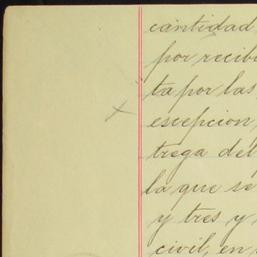 cantidad
por recibi
ta por las
escepcion
trega del
la que se
y tres y
civil, en